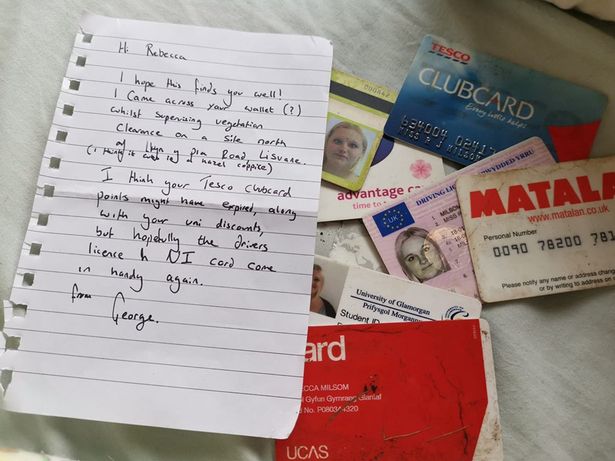 Hi Rebecca
I hope this finds you well!
I came across your wallet (?)
whilst supervising vegetation
clearance on a site north
of Llwyn y Pia Road Lisvane.
(I think it was in a hazel coppice)
I think your Tesco Clubcard
points might have expired, along
with your uni discounts,
but hopefully the drivers
licence & NI card come
in handy again.
from
George.
TESCO
CLUBCARD
Every little helps
634004 02417
MISS R J MILSOM
advantage ca
time to
DRIVING LICE
WYDDED YRRU
UK
MILSOM
MISS
MATALAN
www.matalan.co.uk
Personal Number
0090 78200 781
Please notify any name or address chang
or by writing to address on
University of Glamorgan
Prifysgol Morgannwg
Student ID
ard
ECCA MILSOM
Gyfun Gymraeg Glantaf
No. P0803
UCAS